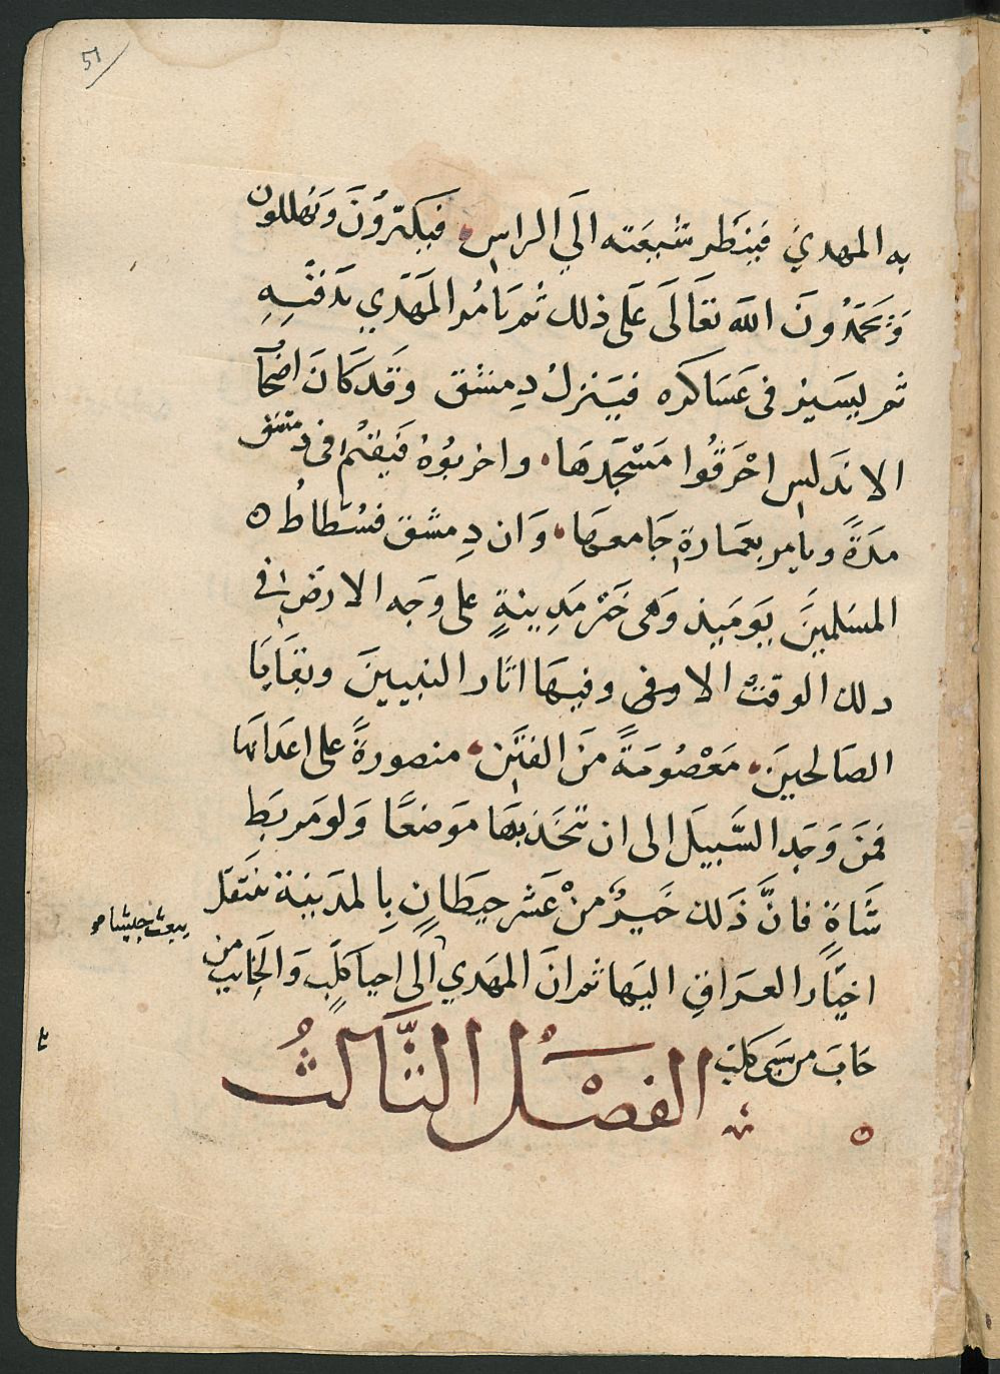 51
به المهدي فينظر شيعته الى الراس فيكبّرون ويهللون
ويحمدون الله تعالى على ذلك ثم يامر المهدي بدفنه
ثم يسير فى عساكره فينزل دمشق وقد كان اصحاب
الاندلس احرقوا مسجدها واخربوه فيقيم فى دمشق
مدة ويامر بعمارة جامعها وان دمشق فسطاط
المسلمين يوميذ وهى خير مدينة على وجه الارض فى
ذلك الوقت الا وفى وفيها اثار النبيين وبقايا
الصالحين معصومة من الفتن منصورة على اعدائها
فمن وجد السبيل الى ان يتخذ بها موضعا ولو مربط
شاة فان ذلك خير من عشر حيطان بالمدينة تنتقل
اخيار العراق اليها ثم ان المهدي الى احيا كلب والخايب من
خاب من سبى كلب
الفصل الثالث
يبعث جيشا